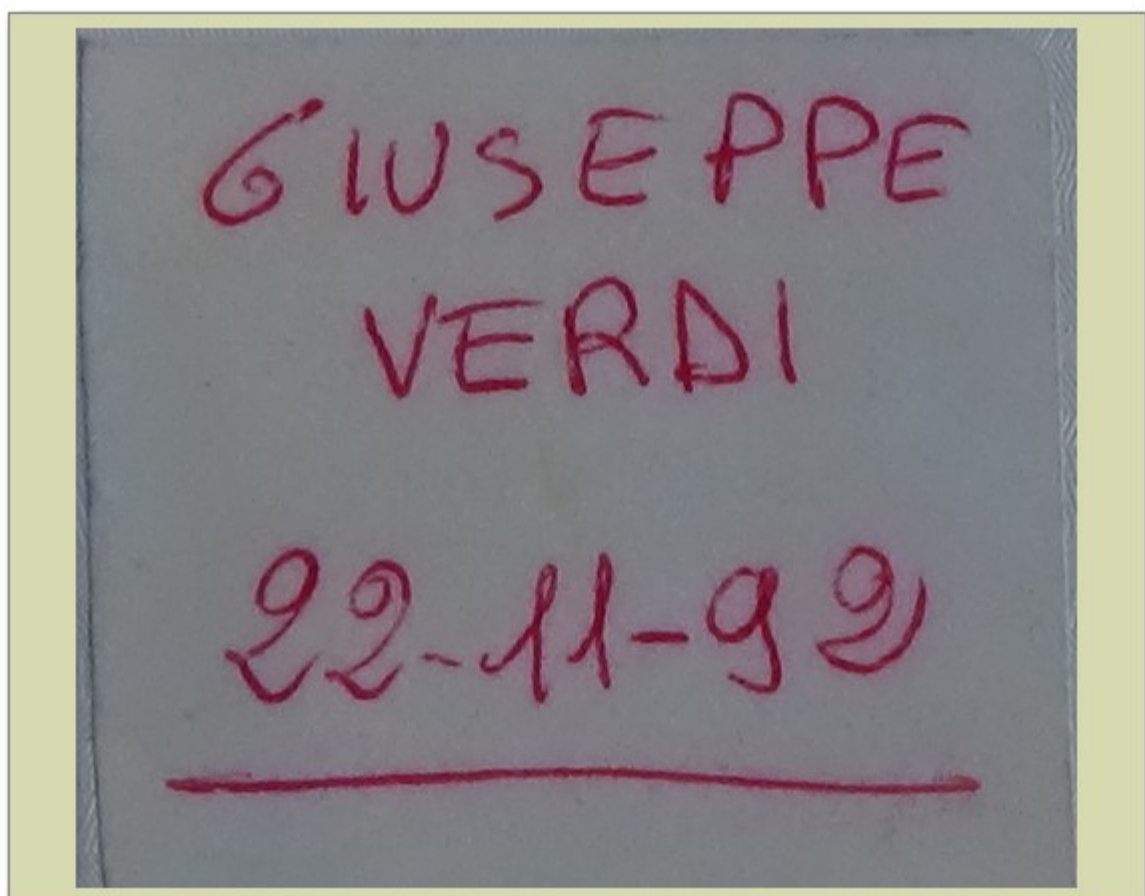 GIUSEPPE
VERDI
22-11-92